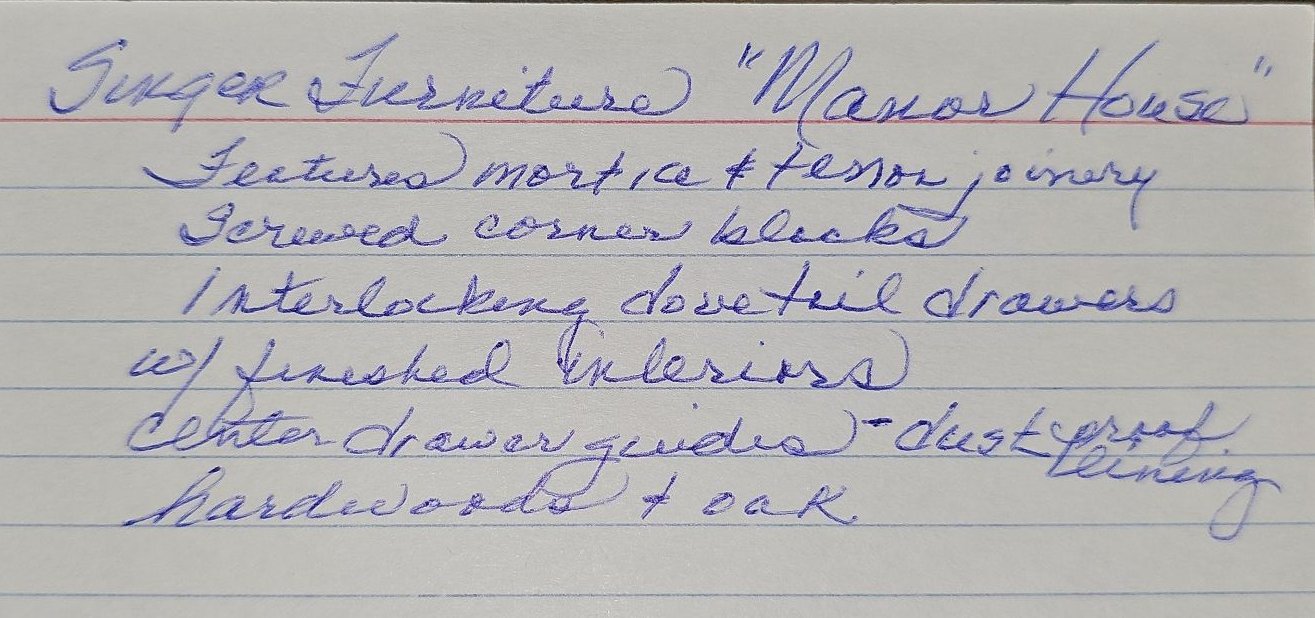 Singer Furniture "Manor House"
Features mortice & tennon joinery
Screwed corner blocks
Interlocking dovetail drawers
w/ finished interiors
center drawer guides - dust proof lining
hardwoods + oak